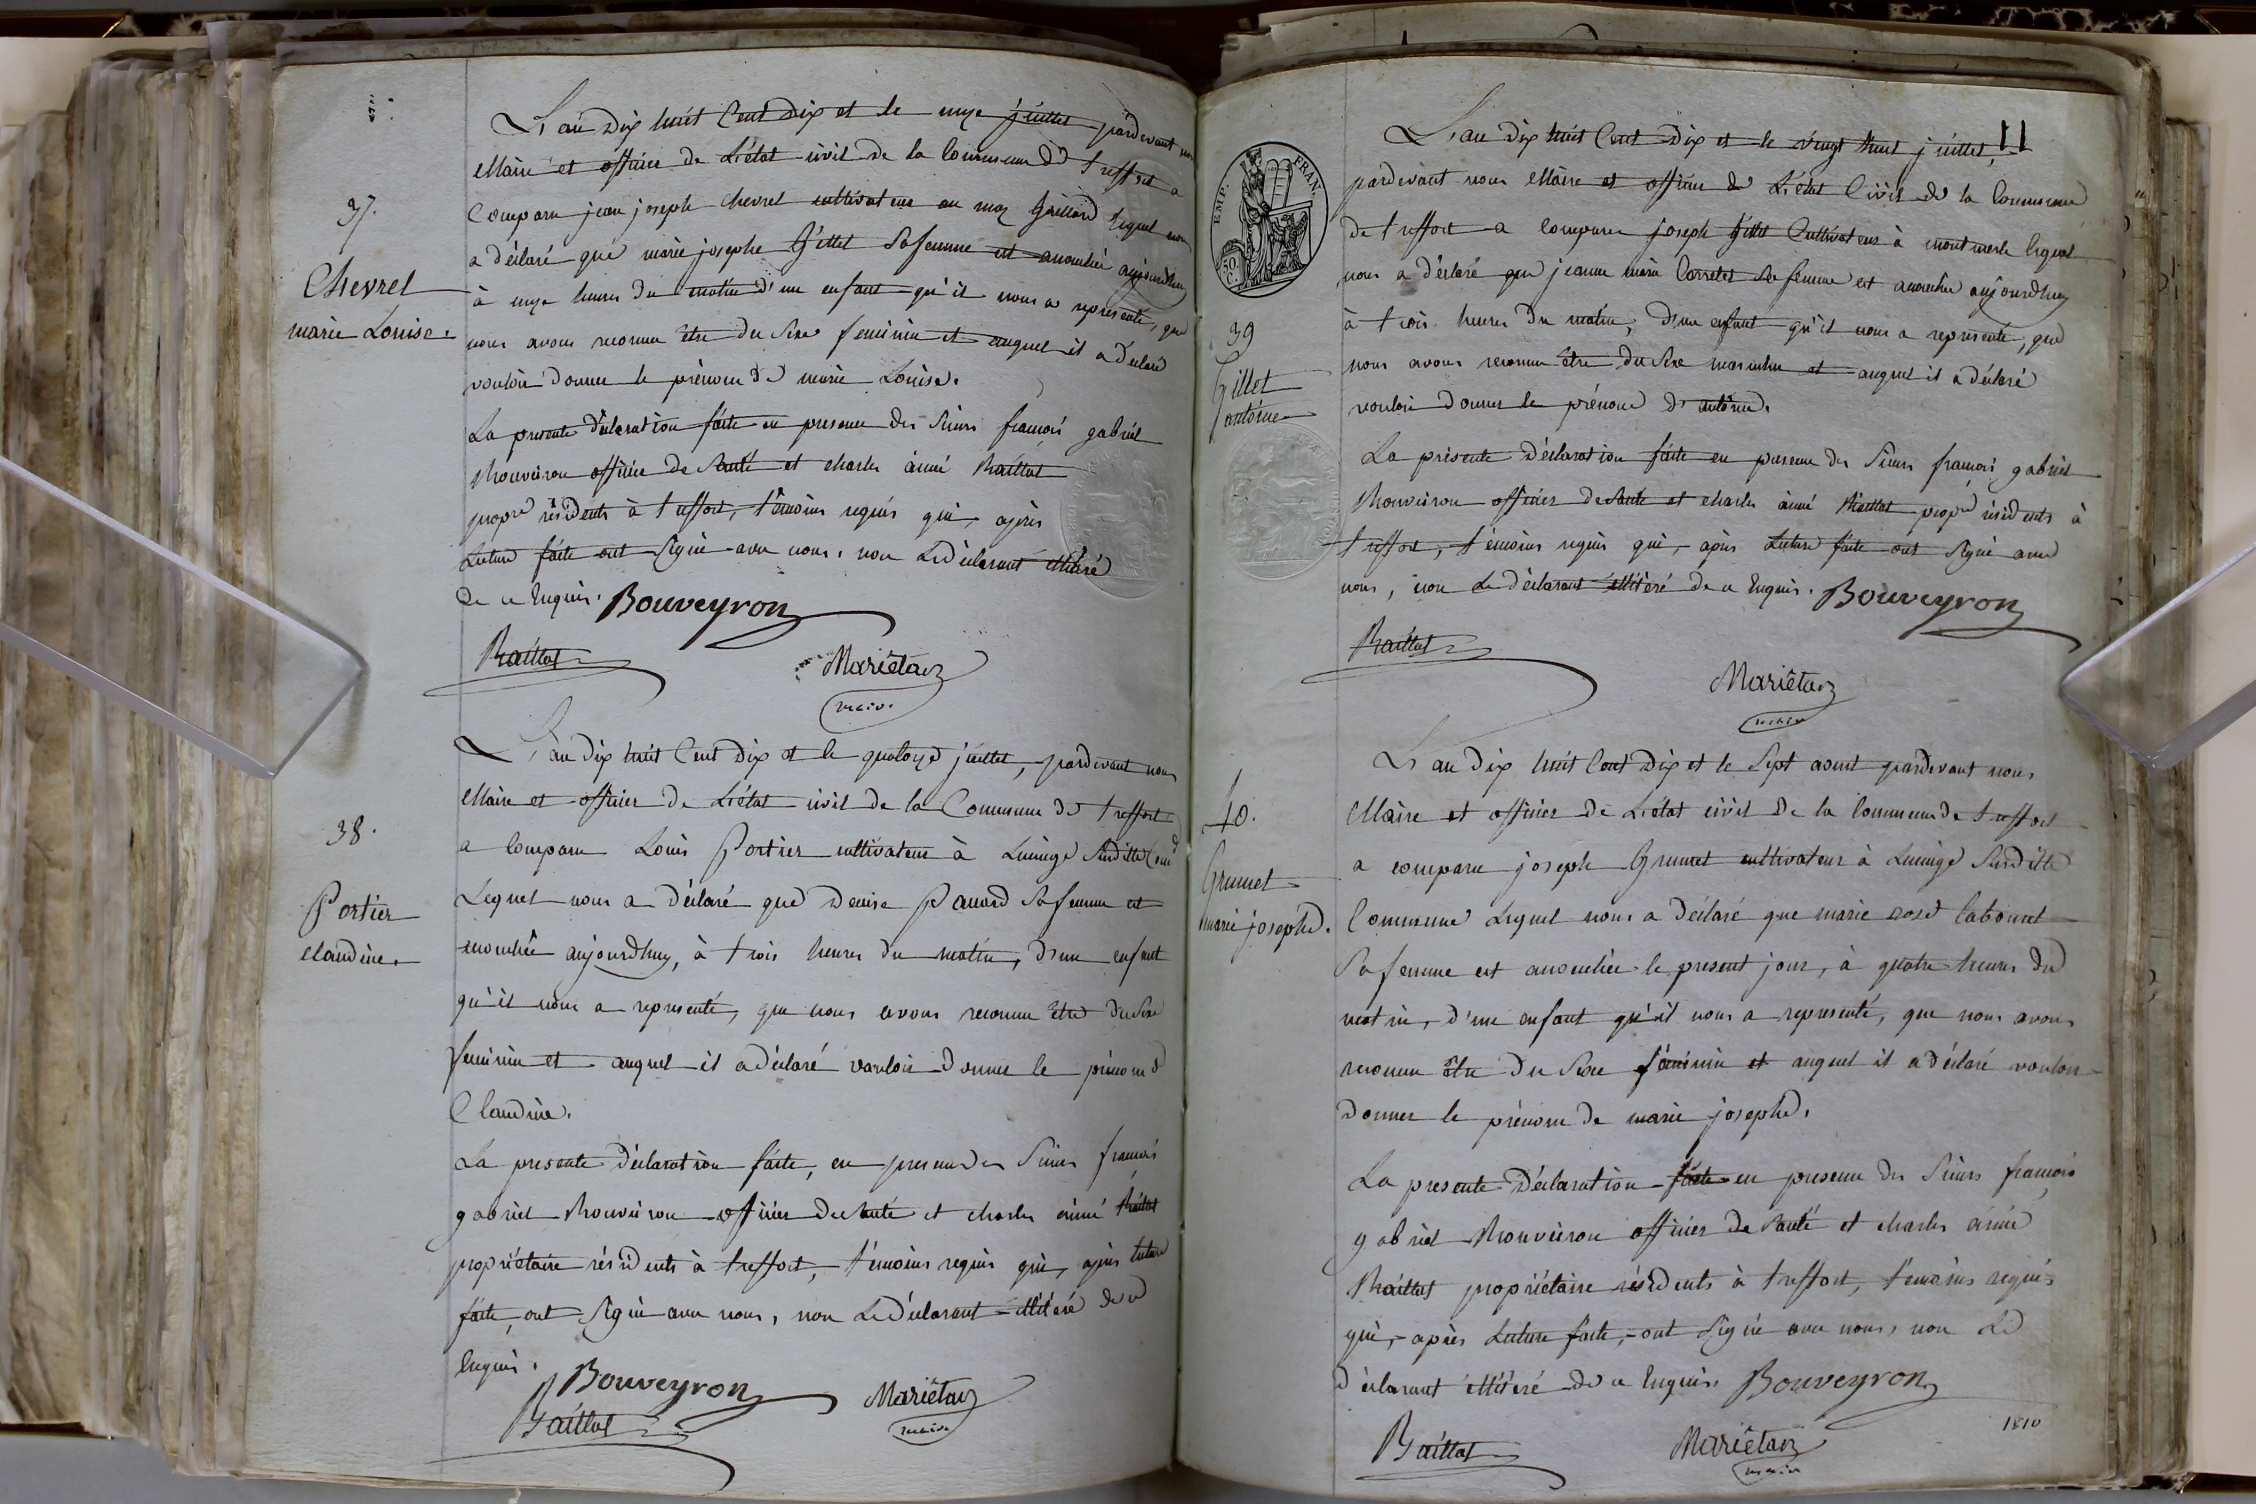 37.
Chevrel
marie Louise.
L'an dix huit Cent dix et le onze juillet pardevant nous
Maire et officier de L'état civil de la Commune de treffort a
Comparu jean joseph chevrel cultivateur au maz Gaillard Lequel nous
a déclaré que marie josephe Gillet Sa femme est accouchée aujourdhuy
à onze heures du matin d'un enfant qu'il nous a représenté, que
nous avons reconnu être du Sexe feminin et auquel il a déclaré
vouloir donner le prénom de marie Louise.
La presente déclaration faite en presence des Sieurs francois gabriel
Bouveiron officier de Santé et charles aimé Raillat
propre résidents à treffort, témoins requis qui, après
Lecture faite ont Signé avec nous, non Le déclarant illitéré
de ce Enquis. Bouveyron
Raillat
Mariêtan
maire
38.
Portier
claudine.
L'an dix huit Cent dix et le quatorze juillet, pardevant nous
Maire et officier de L'état civil de la Commune de treffort
a Comparu Louis Portier cultivateur à Lucinge Susditte Comd
Lequel nous a déclaré que Denise Panard Sa femme est
accouchée aujourdhuy, à trois heures du matin, d'un enfant
qu'il nous a representé, que nous avons reconnu être du Sexe
feminin et auquel il a déclaré vouloir donner le prénom d
Claudine.
La presente déclaration faite, en presence des Sieurs francois
gabriel Bouveiron officier de Santé et charles aimé Raillat
propriétaire résidents à treffort, témoins requis qui, après Lecture
faite, ont Signé avec nous, non Le déclarant illitéré de ce
Enquis.
Bouveyron
Raillat
Mariêtan
maire
EMP. FRAN.
50. C.
39
Gillet
antoine
L'an dix huit Cent dix et le vingt huit juillet,
pardevant nous Maire et officier de L'état Civil de la Commune
de treffort a comparu joseph Gillet Cultivateur à montmerle lequel
nous a déclaré que jeanne marie Carrelet Sa femme est accouchée aujourdhuy
à trois heures du matin, d'un enfant qu'il nous a representé, que
nous avons reconnu être du Sexe masculin et auquel il a déclaré
vouloir donner le prénom d'antoine.
La présente déclaration faite en presence des Sieurs francois gabriel
Bouveiron officier de Santé et charles aimé Raillat propre résidents à
treffort, témoins requis qui, après Lecture faite ont Signé avec
nous, non Le déclarant illitéré de ce Enquis. Bouveyron
Raillat
Mariêtan
maire
40.
Grumet
marie josephe.
L'an dix huit Cent dix et le Sept aoust pardevant nous
Maire et officier de L'état civil de la Commune de treffort
a comparu joseph Grumet cultivateur à Lucinge Susditte
Commune Lequel nous a déclaré que marie rose Cabouret
Sa femme est accouchée le present jour, à quatre heures du
matin, d'un enfant qu'il nous a representé, que nous avons
reconnu être du Sexe féminin et auquel il a déclaré vouloir
donner le prénom de marie josephe.
La presente déclaration faite en presence des Sieurs francois
gabriel Bouveiron officier de Santé et charles aimé
Raillat propriétaire résidents à treffort, témoins requis
qui, après Lecture faite, ont Signé avec nous, non Le
déclarant illitéré de ce Enquis. Bouveyron
1810
Raillat
Mariêtan
maire